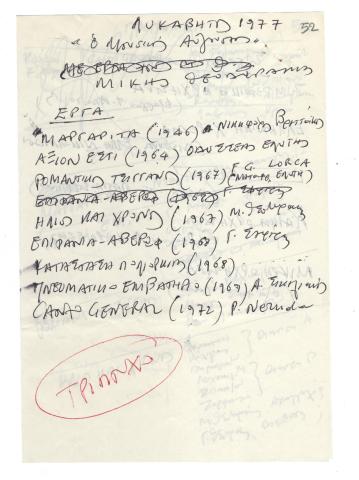 ΛΥΚΑΒΗΤΟΣ 1977
52
"Ο Μουσικός Αύγουστος"
ΜΙΚΗΣ ΘΕΟΔΩΡΑΚΗΣ
ΕΡΓΑ
"ΜΑΡΓΑΡΙΤΑ (1946) Νικηφόρος Βρεττάκος
ΑΞΙΟΝ ΕΣΤΙ (1964) ΟΔΥΣΣΕΑΣ ΕΛΥΤΗΣ
ΡΟΜΑΝΤΙΚΟ ΤΣΙΓΓΑΝΟ (1967) F. G. LORCA
ΕΠΙΦΑΝΙΑ-ΑΒΕΡΩΦ (1968) Γ. Σεφέρης
ΗΛΙΟΣ ΚΑΙ ΧΡΟΝΟΣ (1967) Μ. Θεοδωράκης
ΕΠΙΦΑΝΙΑ-ΑΒΕΡΩΦ (1968) Γ. Σεφέρης
ΚΑΤΑΣΤΑΣΗ ΠΟΛΙΟΡΚΙΑΣ (1968)
ΠΝΕΥΜΑΤΙΚΟ ΕΜΒΑΤΗΡΙΟ (1969) Α. Σικελιανός
CANTO GENERAL (1972) P. Neruda
ΤΡΙΠΟΝΧΟ